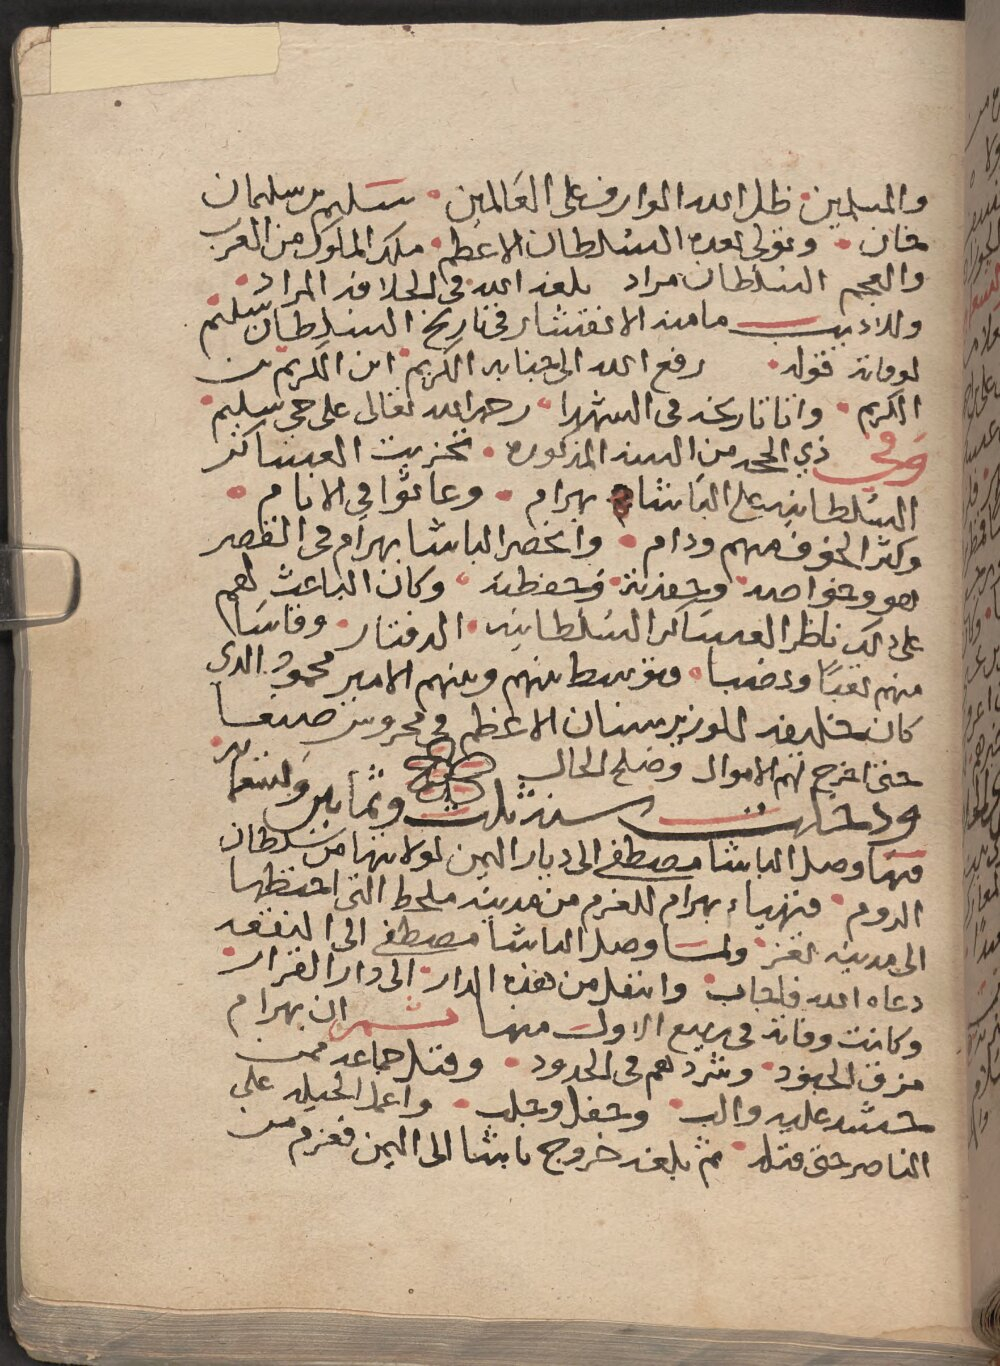 والمسلمين ظل الله الوارف على العالمين سليم بن سليمان
خان وتولى بعده السلطان الاعظم ملك الملوك من العرب
والعجم السلطان مراد بلغه الله في الخلافه المراد
وللاديب مامنه الانفشاري تاريخ السلطان سليم
لوفاته قوله رفع الله الى جنابه الكريم ابن الكريم بن
الكريم واتا تاريخه في الشهدا رحمه الله تعالى على حي سليم
وفي ذي الحجه من السنه المذكوره تحزبت العساكر
السلطانيه على الباشا بهرام وعاثوا في الانام
وكثر الخوف منهم ودام وانحصر الباشا بهرام في القصر
هو وخواصه وحفدته وحفظته وكان الباعث لهم
على ذلك ناظر العساكر السلطانيه الدفتار وقاسا
منهم تعبا ونصبا وتوسط بينهم وبينهم الامير محمود الذي
كان خليفه للوزير سنان الاعظم في محروس صنعا
حتى اخرج لهم الاموال وصلح الحال
ودخلت سنة ثلث وثمانين وتسعمايه
فيها وصل الباشا مصطفى الى ديار اليمن لولايتها من سلطان
الروم فتهياء بهرام للعزم من مدينه ملحظ التي اختطها
الى مدينه تعز ولما وصل الباشا مصطفى الى البقعه
دعاه الله فاجاب وانتقل من هذه الدار الى دار القرار
وكانت وفاته في ربيع الاول منها ثم ان بهرام
مزق الجنود وشردهم في الحدود وقتل جماعه ممن
حشد عليه والب وحفل وجلب واعمل الحيله على
الناصر حتى قتله ثم بلغه خروج باشا الى اليمن فعزم من